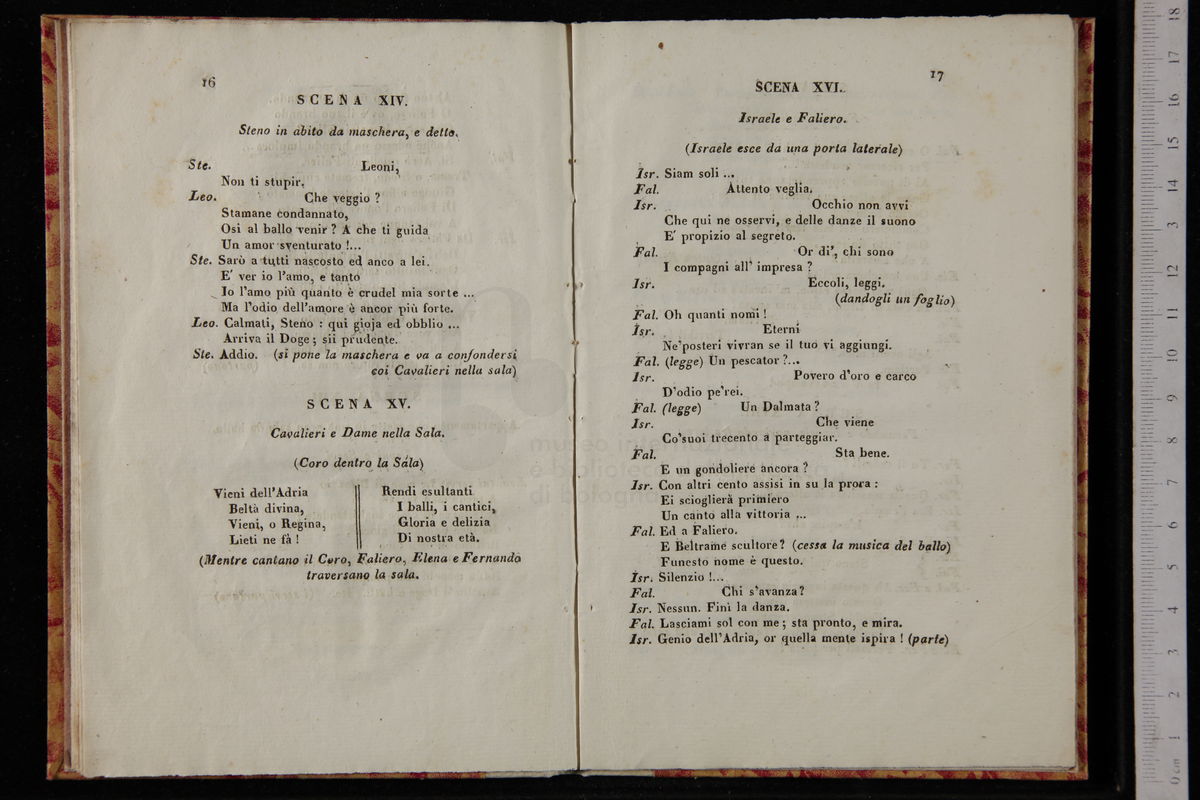 16
SCENA XIV.
Steno in abito da maschera, e detto.
Ste. Leoni,
Non ti stupir.
Leo. Che veggio ?
Stamane condannato,
Osi al ballo venir ? A che ti guida
Un amor sventurato !...
Ste. Sarò a tutti nascosto ed anco a lei.
E' ver io l'amo, e tanto
Io l'amo più quanto è crudel mia sorte ...
Ma l'odio dell'amore è ancor più forte.
Leo. Calmati, Steno : qui gioja ed obblio ...
Arriva il Doge ; sii prudente.
Ste. Addio. (si pone la maschera e va a confondersi
coi Cavalieri nella sala)
SCENA XV.
Cavalieri e Dame nella Sala.
(Coro dentro la Sala)
Vieni dell'Adria
Beltà divina,
Vieni, o Regina,
Lieti ne fà !
Rendi esultanti
I balli, i cantici,
Gloria e delizia
Di nostra età.
(Mentre cantano il Coro, Faliero, Elena e Fernando
traversano la sala.
17
SCENA XVI.
Israele e Faliero.
(Israele esce da una porta laterale)
Isr. Siam soli ...
Fal. Attento veglia.
Isr. Occhio non avvi
Che qui ne osservi, e delle danze il suono
E' propizio al segreto.
Fal. Or di', chi sono
I compagni all' impresa ?
Isr. Eccoli, leggi.
(dandogli un foglio)
Fal. Oh quanti nomi !
Isr. Eterni
Ne'posteri vivran se il tuo vi aggiungi.
Fal. (legge) Un pescator ?...
Isr. Povero d'oro e carco
D'odio pe'rei.
Fal. (legge) Un Dalmata ?
Isr. Che viene
Co'suoi trecento a parteggiar.
Fal. Sta bene.
E un gondoliere ancora ?
Isr. Con altri cento assisi in su la prora :
Ei scioglierà primiero
Un canto alla vittoria ...
Fal. Ed a Faliero.
E Beltrame scultore ? (cessa la musica del ballo)
Funesto nome è questo.
Isr. Silenzio !...
Fal. Chi s'avanza ?
Isr. Nessun. Finì la danza.
Fal. Lasciami sol con me ; sta pronto, e mira.
Isr. Genio dell'Adria, or quella mente ispira ! (parte)
museo internazionale
e biblioteca della musica
di bologna
0 cm 1 2 3 4 5 6 7 8 9 10 11 12 13 14 15 16 17 18